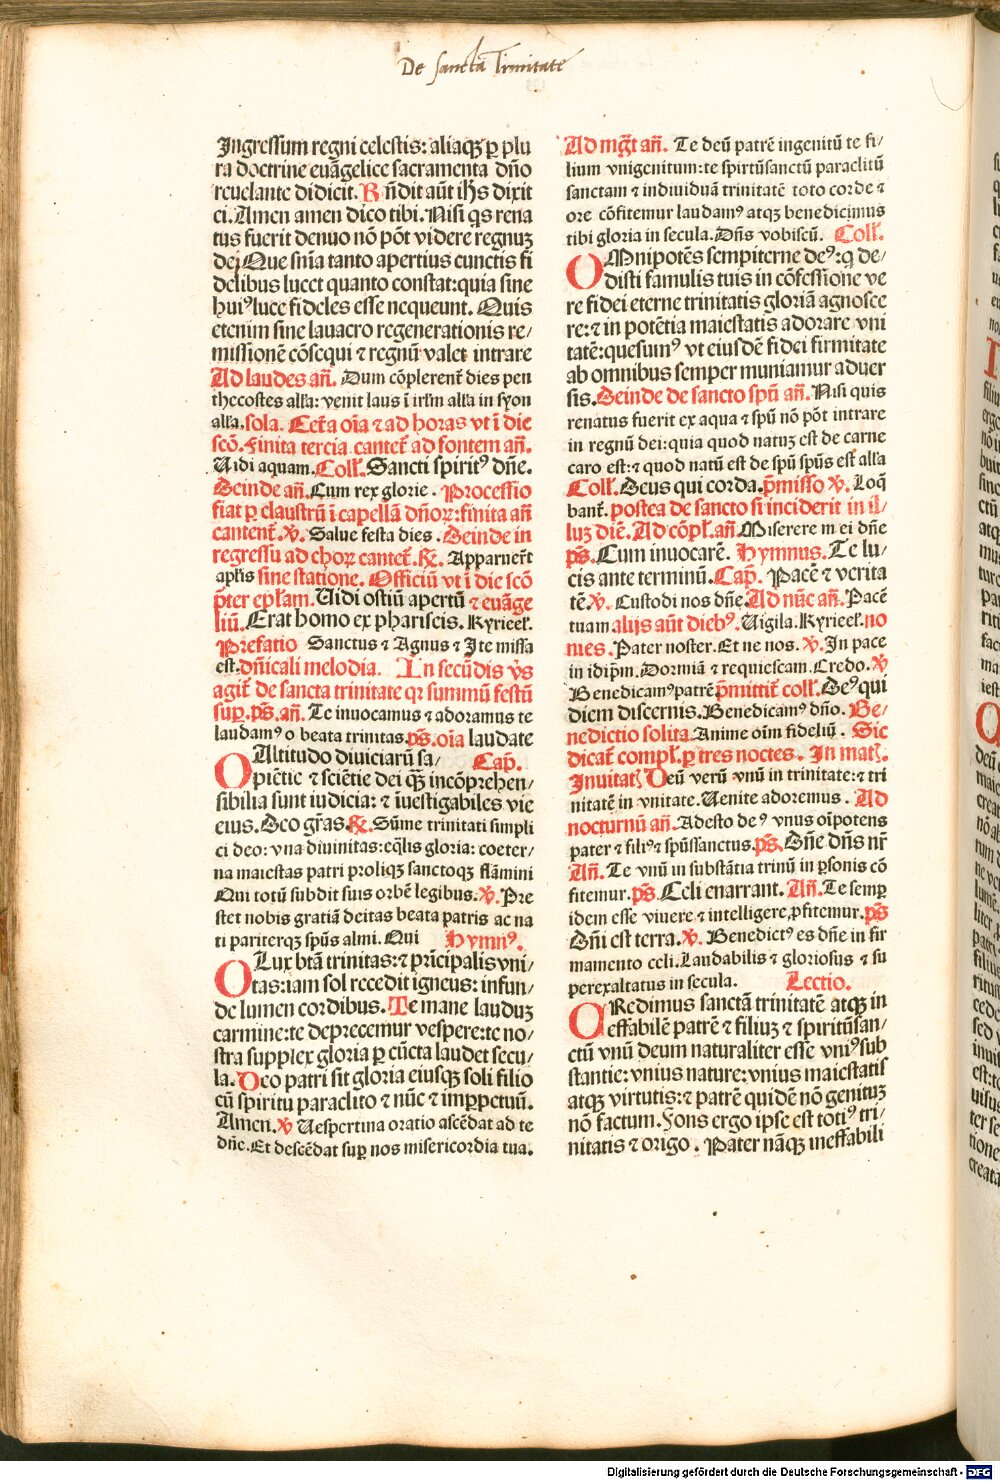 De sancta Trinitate
Ingressum regni celestis: aliaqꝫ ꝑ plu
ra doctrine euãgelice sacramenta dño
reuelante didicit. Rñdit aũt ihs dixit
ei. Amen amen dico tibi. Nisi qs rena
tus fuerit denuo nõ põt videre regnuꝫ
dei Que snĩa tanto apertius cunctis fi
delibus lucet quanto constat: quia sine
huiꝰ luce fideles esse nequeunt. Quis
etenim sine lauacro regenerationis re/
missionẽ cõsequi ⁊ regnũ valet intrare
Ad laudes añ. Dum cõplerent᷑ dies pen
thecostes alła: venit laus ĩ irłm alła in syon
alła. sola. Cet᷑a oĩa ⁊ ad horas vt ĩ die
scõ. Finita tercia cantet᷑ ad fontem añ.
Uidi aquam. Coll᷑. Sancti spiritꝰ dñe.
Deinde añ. Cum rex glorie. Processio
fiat ꝑ claustrũ ĩ capellã dñoꝝ: finita añ
cantent᷑. ꝟ. Salue festa dies. Deinde in
regressu ad choꝝ cantet᷑. ℟. Apparuer᷑t
apłis sine statione. Officiũ vt ĩ die scõ
p̃ter epłam. Uidi ostiũ apertũ ⁊ euãge
liũ. Erat homo ex phariseis. Kyrieel᷑.
Prefatio Sanctus ⁊ Agnus ⁊ Ite missa
est. dñicali melodia. In secũdis vṽs
agit᷑ de sancta trinitate qꝛ summũ festũ
suꝑ. ps̃. añ. Te inuocamus ⁊ adoramus te
laudamꝰ o beata trinitas. ps̃. oĩa laudate
O Altitudo diuiciarũ sa/ Cap̃.
piẽtie ⁊ sciẽtie dei qꝫ incõprehen/
sibilia sunt iudicia: ⁊ ĩuestigabiles vie
eius. Deo gr̃as. ℟. Sũme trinitati simpli
ci deo: vna diuinitas: eq̃lis gloria: coeter/
na maiestas patri proliqꝫ sanctoqꝫ flãmini
Qui totũ subdit suis orbẽ legibus. ꝟ. Pre
stet nobis gratiã deitas beata patris ac na
ti pariterqꝫ spũs almi. Qui Hymnꝰ.
O Lux btã trinitas: ⁊ pricipalis vni/
tas: iam sol recedit igneus: infun/
de lumen cordibus. Te mane lauduꝫ
carmine: te deprecemur vespere: te no/
stra supplex gloria ꝑ cũcta laudet secu/
la. Deo patri sit gloria eiusqꝫ soli filio
cũ spiritu paraclito ⁊ nũc ⁊ imꝑpetuũ.
Amen. ꝟ Uespertina oratio ascẽdat ad te
dñe. Et descẽdat suꝑ nos misericordia tua.
Ad mg̃t añ. Te deũ patrẽ ingenitũ te fi/
lium vnigenitum: te spirtũsanctũ paraclitũ
sanctam ⁊ indiuiduã trinitatẽ toto corde ⁊
ore cõfitemur laudamꝰ atqꝫ benedicimus
tibi gloria in secula. Dñs vobiscũ. Coll᷑.
OMnipotẽs sempiterne deꝰ: q de/
disti famulis tuis in cõfessione ve
re fidei eterne trinitatis gloriã agnosce
re: ⁊ in potẽtia maiestatis adorare vni
tatẽ: quesumꝰ vt eiusdẽ fidei firmitate
ab omnibus semper muniamur aduer
sis. Deinde de sancto spũ añ. Nisi quis
renatus fuerit ex aqua ⁊ spũ nõ põt intrare
in regnũ dei: quia quod natuꝫ est de carne
caro est: ⁊ quod natũ est de spũ spũs est alła
Coll᷑. Deus qui corda. p̃misso ꝟ. Loq̃
bant᷑. postea de sancto si inciderit in il/
luꝫ diẽ. Ad cõpl᷑. añ. Miserere mei dñe
ps̃. Cum inuocarẽ. Hymnus. Te lu/
cis ante terminũ. Cap̃. Pacẽ ⁊ verita
tẽ. ꝟ. Custodi nos dñe. Ad nũc añ. Pacẽ
tuam alijs aũt diebꝰ. Uigila. Kyrieel᷑. no
mes. Pater noster. Et ne nos. ꝟ. In pace
in idip̃m. Dormiã ⁊ requiescam. Credo. ꝟ
Benedicamꝰ patrẽ p̃mittit᷑ coll᷑. Deꝰ qui
diem discernis. Benedicamꝰ dño. Be/
nedictio solita. Anime oĩm fideliũ. Sic
dicat᷑ compl᷑. ꝑ tres noctes. In mat᷑.
Inuitat᷑ Deũ verũ vnũ in trinitate: ⁊ tri
nitatẽ in vnitate. Uenite adoremus. Ad
nocturnũ añ. Adesto deꝰ vnus oĩpotens
pater ⁊ filiꝰ ⁊ spũssanctus. ps̃. Dñe dñs nr̃
Añ. Te vnũ in substãtia trinũ in ꝑsonis cõ
fitemur. ps̃. Celi enarrant. Añ. Te semꝑ
idem esse viuere ⁊ intelligere ꝓfitemur. ps̃
Dñi est terra. ꝟ. Benedictꝰ es dñe in fir
mamento celi. Laudabilis ⁊ gloriosus ⁊ su
perexaltatus in secula. Lectio.
CRedimus sanctã trinitatẽ atqꝫ in
effabilẽ patrẽ ⁊ filiuꝫ ⁊ spiritũsan/
ctũ vnũ deum naturaliter esse vniꝰ sub
stantie: vnius nature: vnius maiestatis
atqꝫ virtutis: ⁊ patrẽ quidẽ nõ genituꝫ
nõ factum. Fons ergo ipse est totiꝰ tri/
nitatis ⁊ origo. Pater nãqꝫ ineffabili
Digitalisierung gefördert durch die Deutsche Forschungsgemeinschaft - DFG